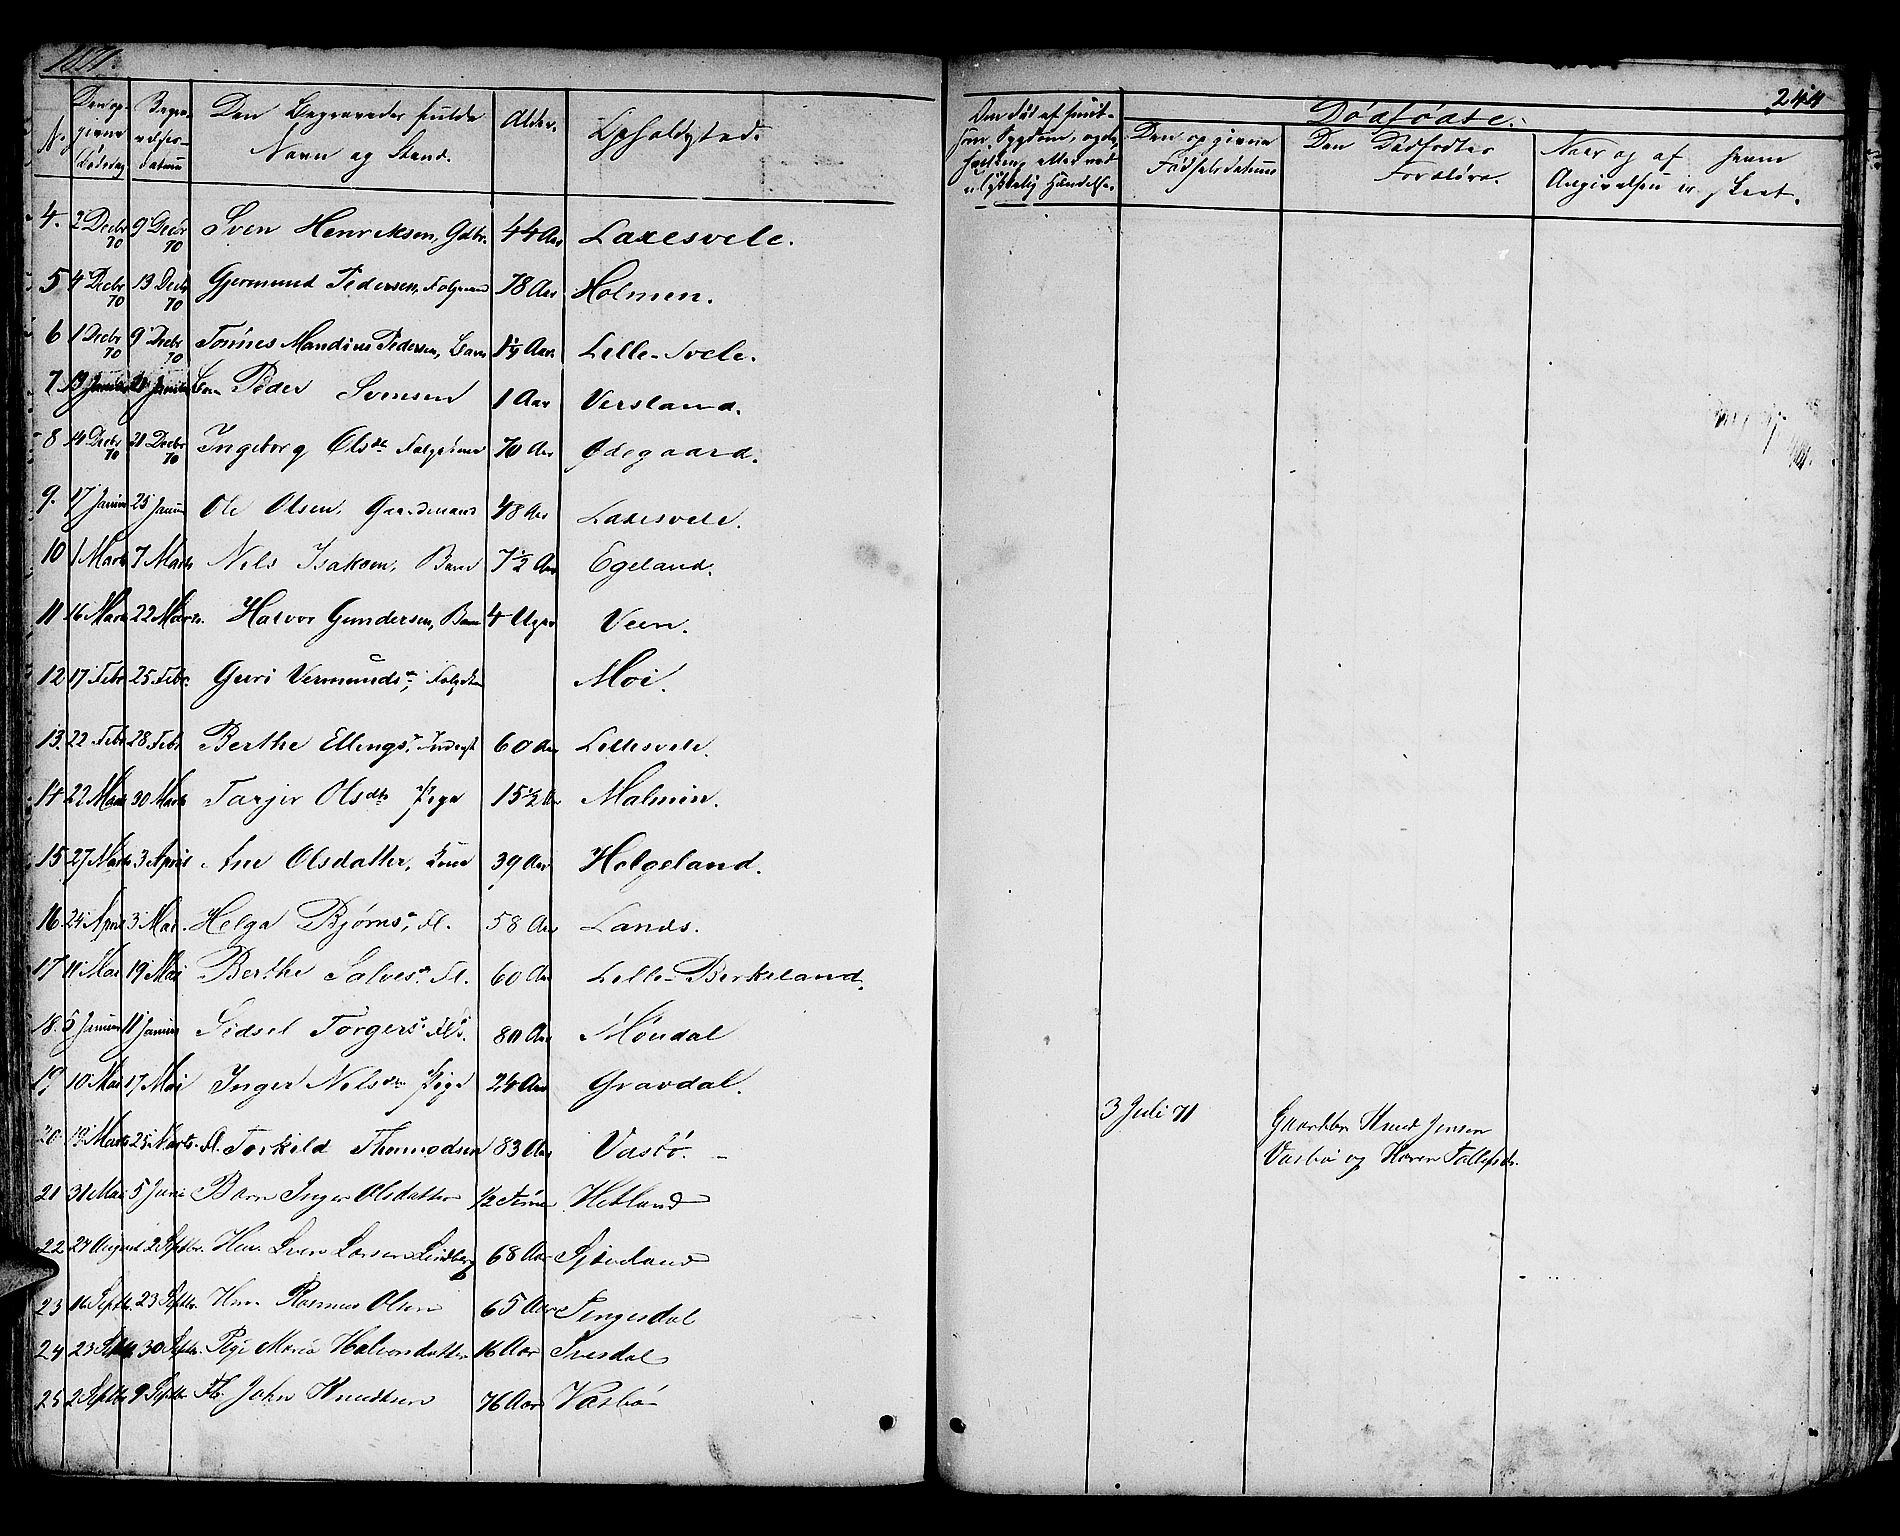 1871.
No.
Den op-
givne
Dødsdag
Begra-
velses-
datum
Den Begravedes fulde
Navn og Stand.
Alder.
Opholdssted.
4. 2 Decbr 70 9 Decbr 70 Sven Henriksen, Gdbr. 44 Aar Laxesvele.
5 4 Decbr 70 13 Decbr 70 Gjermund Pedersen, Folgemand 78 Aar Holmen.
6 1 Decbr 70 9 Decbr 70 Tønnes Mandius Pedersen, Barn 1¼ Aar Lille-Svele.
7. 13 Januar 21 Januar Barn Peder Svensen 1 Aar Versland.
8 14 Decbr 70 21 Decbr 70 Ingeborg Olsdtr Folgekone 70 Aar Ødegaard.
9. 17 Januar 25 Januar Ole Olsen, Gaardmand 48 Aar Laxesvele.
10 1 Marts 7 Marts Nils Isaksen, Barn 7½ Aar Egeland.
11 16 Marts 22 Marts. Halvor Gundersen, Barn 4 Uger Veen.
12 17 Febr 25 Febr. Guri Vermundsd., Folgekone Moi.
13. 22 Febr 28 Febr Berthe Ellingsd. Inderst 60 Aar Lillesvele.
14 22 Marts 30 Marts Tarjer Olsdtr Pige 15½ Aar Malmin.
15 27 Marts 3 April Ane Olsdatter, Kone 39 Aar Helgeland.
16 24 April 3 Mai. Helga Bjørnsd., Fl. 58 Aar Lands.
17 11 Mai 19 Mai Berthe Salvesd. Fl. 60 Aar Lille-Birkeland.
18. 5 Januar 11 Januar Sidsel Torgersd. Fl. 80 Aar Møndal
19 10 Mai 17 Mai Inger Nilsdtr Pige 24 Aar Gravdal.
20 19 Marts 25 Marts. Fl. Torkild Thormodsen 83 Aar Vasbø.
21 31 Mai 5 Juni Barn Inger Olsdatter ½ Time Hetland
22 27 August 2 Septbr. Huusm. Sven Larsen Lindberg 68 Aar Skjæveland
23 16 Septbr. 23 Septbr. Huusm. Rasmus Olsen 65 Aar Tengesdal
24 23 Septbr 30 Septbr. Pige Maria Halvorsdatter 16 Aar Ivesdal
25 2 Septbr 9 Septbr. Fl. John Knudsen 76 Aar Vasbø
244
Om død af smit-
som Sygdom, og da
hvilken, eller ved
ulykkelig Hændelse.
Dødfødte.
Den opgivne
Fødselsdatum
Den Dødfødtes
Forældre.
Naar og af hvem
Angivelsen er skeet.
3 Juli 71
Gaardbr Knud Jensen
Vasbø og Karen Tollefsdtr.